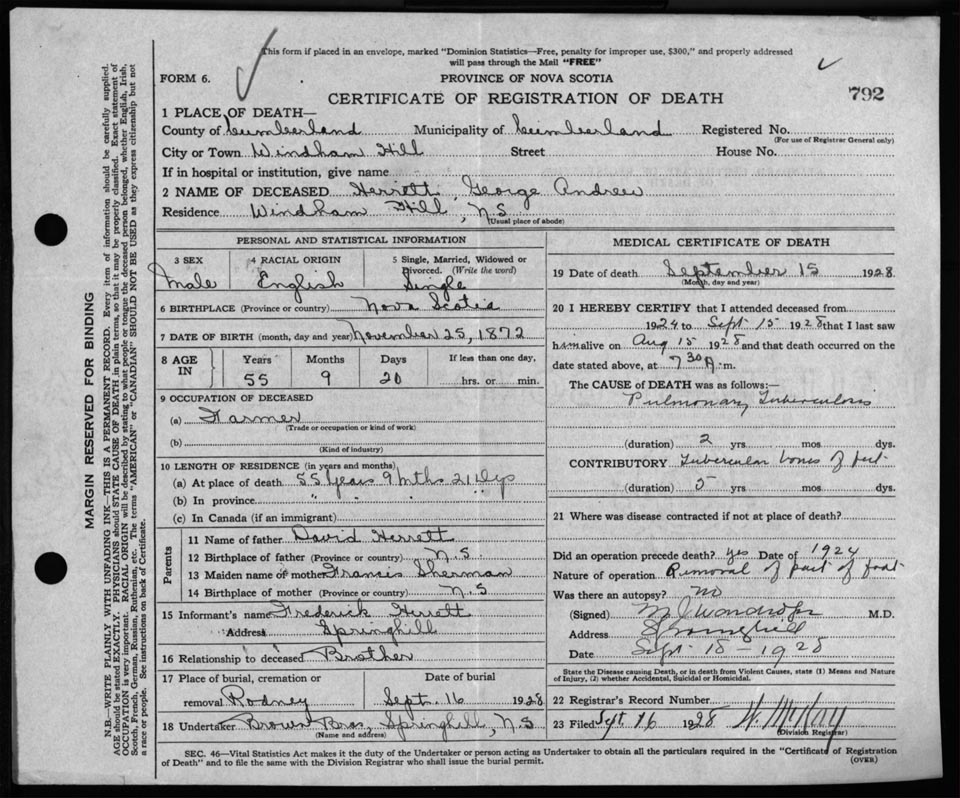 This form if placed in an envelope, marked "Dominion Statistics—Free, penalty for improper use, $300," and properly addressed
will pass through the Mail "FREE"
FORM 6.
PROVINCE OF NOVA SCOTIA
792
CERTIFICATE OF REGISTRATION OF DEATH
1 PLACE OF DEATH—
County of Cumberland Municipality of Cumberland Registered No.
(For use of Registrar General only)
City or Town Windham Hill Street House No.
If in hospital or institution, give name
2 NAME OF DECEASED Herrett, George Andrew
Residence Windham Hill, N.S
(Usual place of abode)
PERSONAL AND STATISTICAL INFORMATION
3 SEX 4 RACIAL ORIGIN 5 Single, Married, Widowed or
Divorced. (Write the word)
Male English Single
6 BIRTHPLACE (Province or country) Nova Scotia
7 DATE OF BIRTH (month, day and year) November 25, 1872
8 AGE IN Years Months Days If less than one day,
55 9 20 hrs. or min.
9 OCCUPATION OF DECEASED
(a) Farmer
(Trade or occupation or kind of work)
(b)
(Kind of industry)
10 LENGTH OF RESIDENCE (in years and months)
(a) At place of death 55 Years 9 Mths 21 Dys
(b) In province " " " "
(c) In Canada (if an immigrant)
Parents
11 Name of father David Herrett
12 Birthplace of father (Province or country) N.S
13 Maiden name of mother Francis Sherman
14 Birthplace of mother (Province or country) N.S
15 Informant's name Frederick Herrett
Address Springhill
16 Relationship to deceased Brother
17 Place of burial, cremation or Date of burial
removal Rodney Sept. 16 1928
18 Undertaker Brown Bros, Springhill, N.S
(Name and address)
MEDICAL CERTIFICATE OF DEATH
19 Date of death September 15 1928
(Month, day and year)
20 I HEREBY CERTIFY that I attended deceased from
1924 to Sept 15 1928 that I last saw
him alive on Aug 15 1928 and that death occurred on the
date stated above, at 7 30 A. m.
The CAUSE of DEATH was as follows:—
Pulmonary Tuberculosis
(duration) 2 yrs mos dys.
CONTRIBUTORY Tubercular bones of feet
(duration) 5 yrs mos dys.
21 Where was disease contracted if not at place of death?
Did an operation precede death? yes Date of 1924
Nature of operation Removal of part of foot
Was there an autopsy? no
(Signed) M.D.
Address Springhill
Date Sept 15 - 1928
State the Disease causing Death, or in death from Violent Causes, state (1) Means and Nature
of Injury, (2) whether Accidental, Suicidal or Homicidal.
22 Registrar's Record Number
23 Filed Sept 16 1928 W. McKay
(Division Registrar)
SEC. 46—Vital Statistics Act makes it the duty of the Undertaker or person acting as Undertaker to obtain all the particulars required in the "Certificate of Registration
of Death" and to file the same with the Division Registrar who shall issue the burial permit.
(OVER)
MARGIN RESERVED FOR BINDING
N.B.—WRITE PLAINLY WITH UNFADING INK—THIS IS A PERMANENT RECORD. Every item of information should be carefully supplied.
AGE should be stated EXACTLY. PHYSICIANS should STATE CAUSE OF DEATH in plain terms, so that it may be properly classified. Exact statement of
OCCUPATION is very important. RACIAL ORIGIN will be described by stating to what people or tongue the deceased person belonged, whether English, Irish,
Scotch, French, German, Russian, Ruthenian, etc. The terms "AMERICAN" or "CANADIAN" SHOULD NOT BE USED as they express citizenship but not
a race or people. See instructions on back of Certificate.